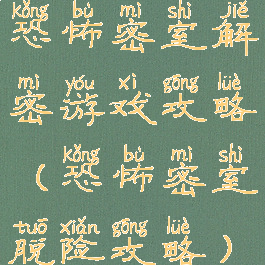 kǒng bù mì shì jiě
恐怖密室解
mì yóu xì gōng lüè
密游戏攻略
kǒng bù mì shì
（恐怖密室
tuō xiǎn gōng lüè
脱险攻略）